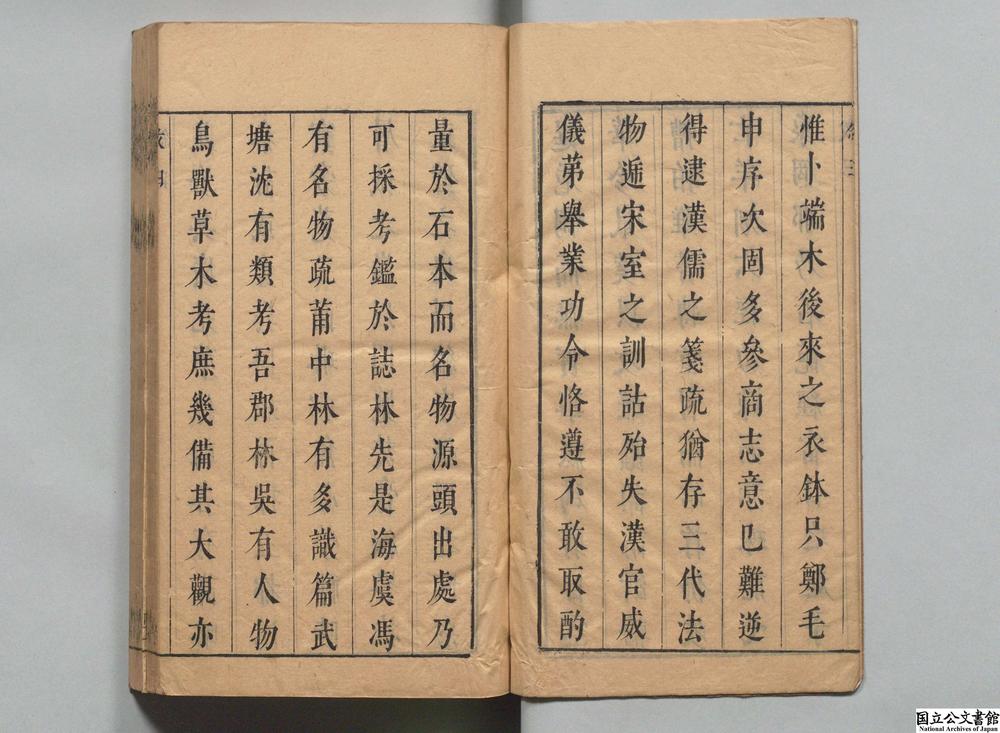 惟卜端木後來之衣鉢只鄭毛
申序次固多參商志意已難逆
得逮漢儒之箋疏猶存三代法
物遞宋室之訓詁殆失漢官威
儀弟舉業功令恪遵不敢取酌
量於石本而名物源頭出處乃
可採考鑑於誌林先是海虞馮
有名物疏莆中林有多識篇武
塘沈有類考吾郡林吳有人物
鳥獸草木考庶幾備其大觀亦
国立公文書館
National Archives of Japan